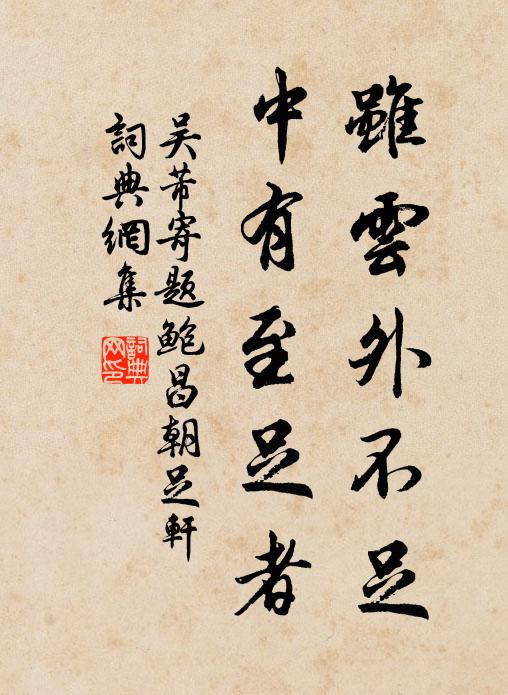 雖雲外不足
中有至足者
吴芾寄题鮑昌朝足軒
詞典網集
詞典網印